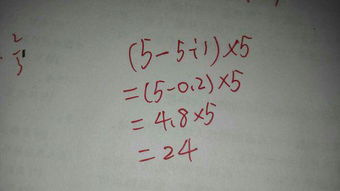 (5-5÷1)×5
=(5-0.2)×5
=4.8×5
=24